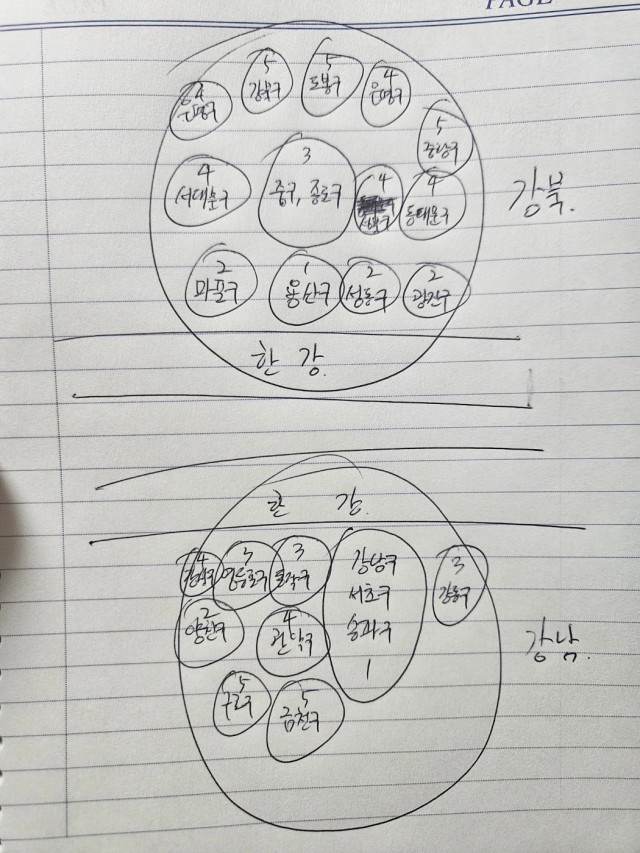 PAGE
5
강북구
5
도봉구
4
은평구
5
중랑구
강북.
4
서대문구
3
중구, 종로구
4
4
동대문구
2
마포구
1
용산구
2
성동구
2
광진구
한 강.
한 강.
4
강서구
3
영등포구
3
동작구
강남구
서초구
송파구
1
3
강동구
2
양천구
4
관악구
강남.
5
구로구
5
금천구